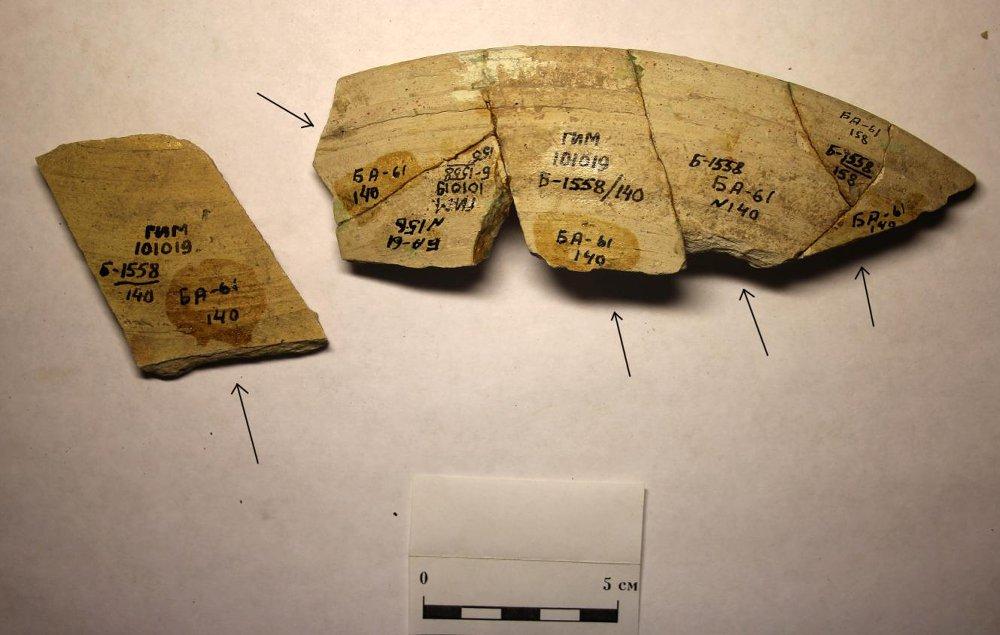 ГИМ
101019
Б-1558
140
БА-61
140
БА-61
140
150
Б-1558
101019
ГИМ
N158
БА-61
ГИМ
101019
Б-1558/140
БА-61
140
Б-1558
БА-61
N140
БА-61
158
Б-1558
158
БА-61
140
0 5 см